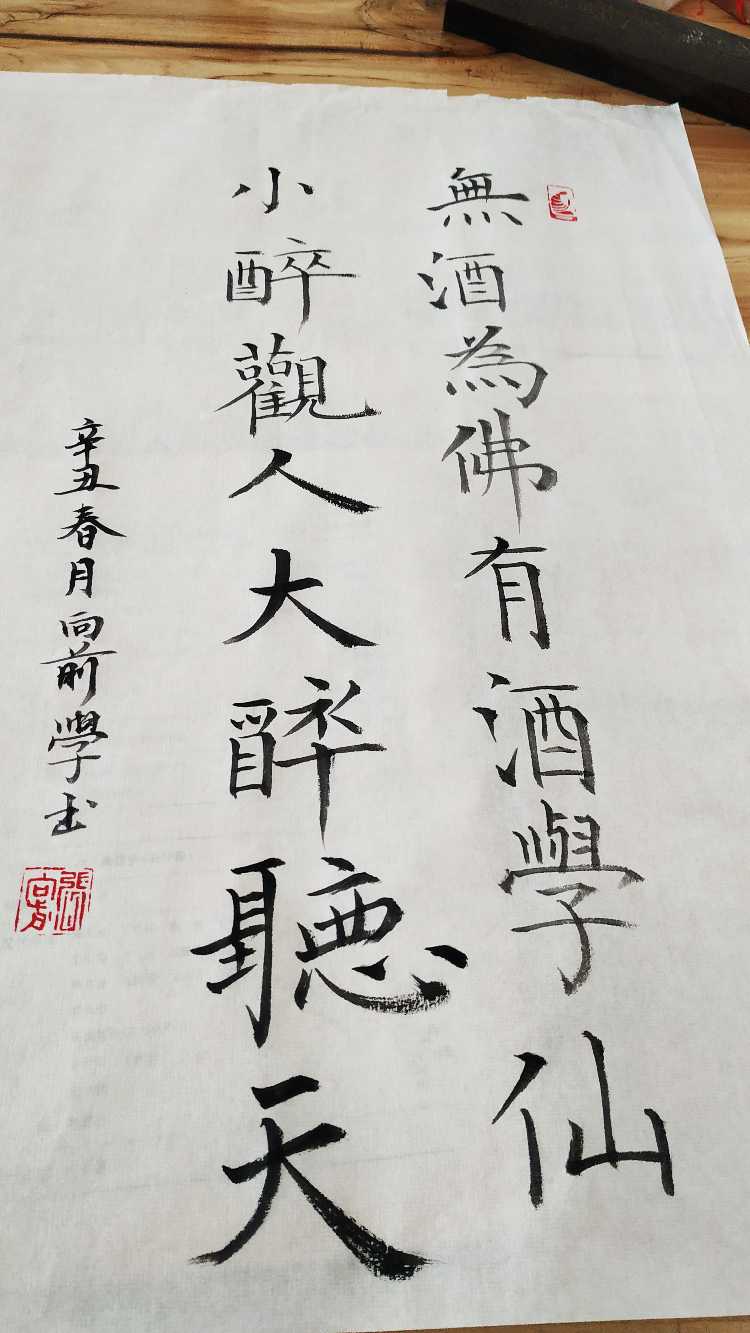 無酒為佛有酒學仙
小醉觀人大醉聽天
辛丑春月向前學书